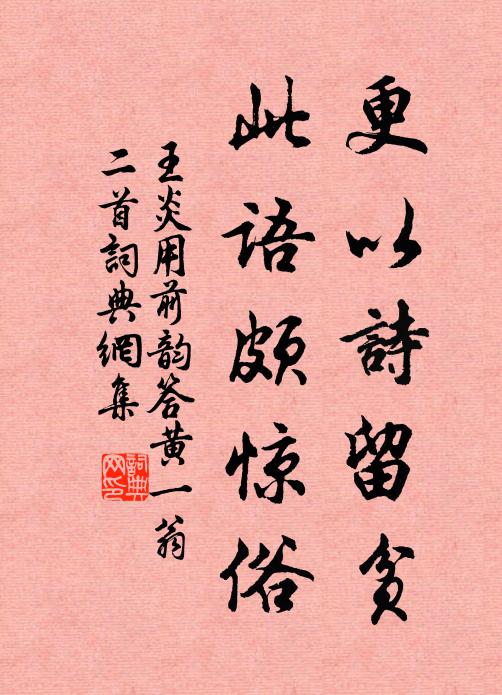 更以詩留貧
此語頗惊俗
王炎用前韵答黄一翁
二首詞典網集
詞典
网印